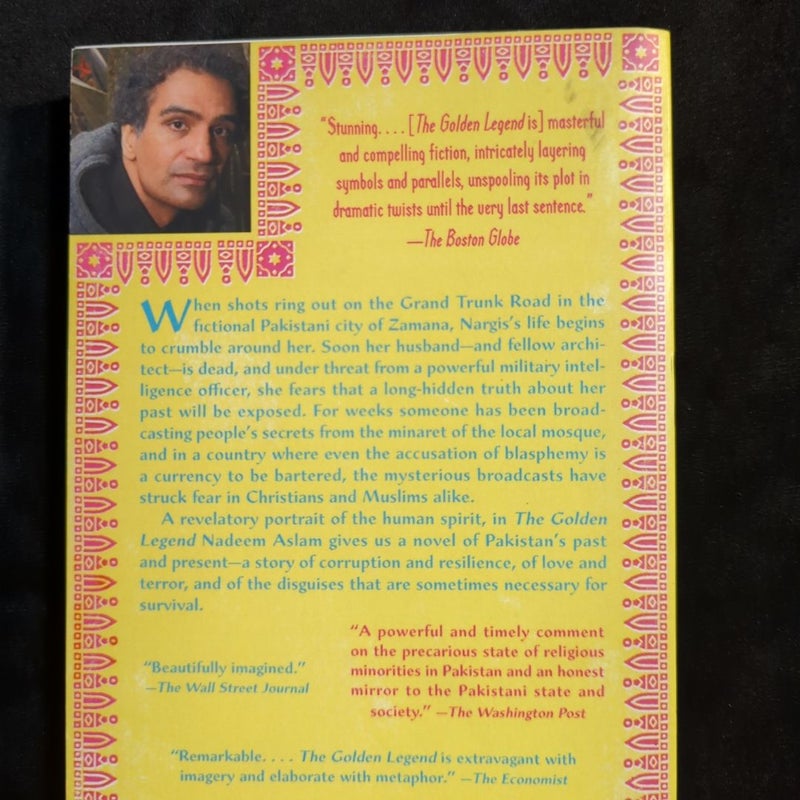 “Stunning. . . . [The Golden Legend is] masterful
and compelling fiction, intricately layering
symbols and parallels, unspooling its plot in
dramatic twists until the very last sentence.”
—The Boston Globe
When shots ring out on the Grand Trunk Road in the
fictional Pakistani city of Zamana, Nargis’s life begins
to crumble around her. Soon her husband—and fellow archi-
tect—is dead, and under threat from a powerful military intel-
ligence officer, she fears that a long-hidden truth about her
past will be exposed. For weeks someone has been broad-
casting people’s secrets from the minaret of the local mosque,
and in a country where even the accusation of blasphemy is
a currency to be bartered, the mysterious broadcasts have
struck fear in Christians and Muslims alike.
A revelatory portrait of the human spirit, in The Golden
Legend Nadeem Aslam gives us a novel of Pakistan’s past
and present—a story of corruption and resilience, of love and
terror, and of the disguises that are sometimes necessary for
survival.
“Beautifully imagined.”
—The Wall Street Journal
“A powerful and timely comment
on the precarious state of religious
minorities in Pakistan and an honest
mirror to the Pakistani state and
society.” —The Washington Post
“Remarkable. . . . The Golden Legend is extravagant with
imagery and elaborate with metaphor.” —The Economist